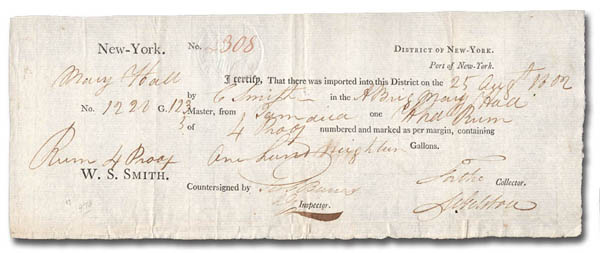 New-York. No. 2308 District of New-York.
Port of New-York.
Mary Hall I certify, That there was imported into this District on the 25 Augt. 1802
by C Smith in the A Brig Mary Hall
No. 1228 G. 123 Master, from Jamaica one Hhd Rum
of 4 Proof numbered and marked as per margin, containing
Rum 4 Proof One hund Gallons.
W. S. Smith.
Countersigned by For the Collector.
Inspector.